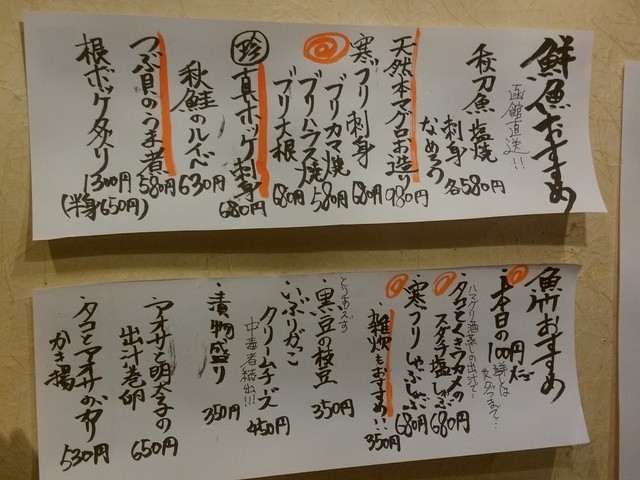 鮮魚おすすめ
函館直送!!
秋刀魚塩焼
刺身
なめろう
各580円
天然本マグロお造り
980円
寒ブリ刺身
680円
ブリカマ焼
580円
ブリハラス焼
680円
ブリ大根
珍
真ホッケ刺身
680円
秋鮭のルイベ
630円
つぶ貝のうま煮
580円
根ボッケ夕炙り
1300円
(半身650円)
魚竹おすすめ
・本日の100円メニュー
ハマグリ酒蒸しの出汁で…
・タコとくきワカメの
スダチ塩しゃぶ
680円
・寒ブリしゃぶしゃぶ
680円
雑炊もおすすめ!!
350円
とりあえず
・黒豆の枝豆
350円
・いぶりがっこ
クリームチーズ
中毒者続出!!!
450円
・漬物盛り
350円
・アオサと明太子の
出汁巻卵
650円
・タコとアオサのかり
かき揚
530円